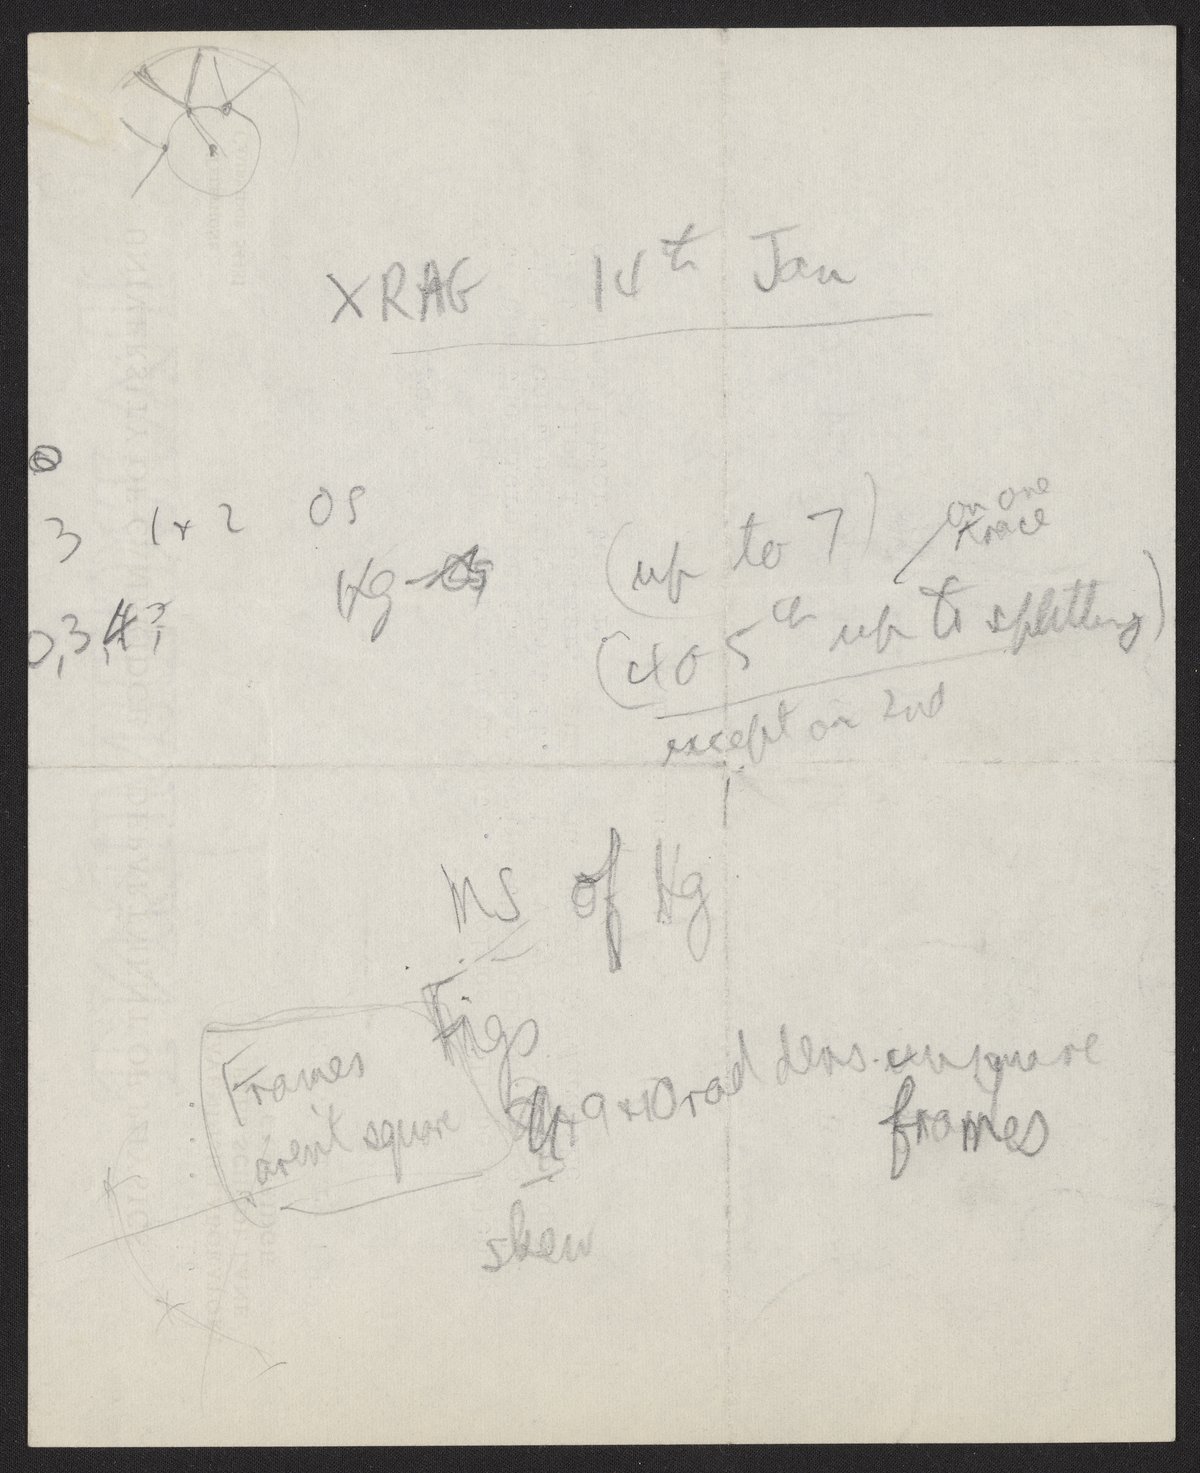 XRAG 14th Jan
3 1+2 OS (up to 7) on one
trace
Hg
0,3,4, (40 5th up to splitting)
except on 2nd
MS of Hg
Figs
Frames
arent square
9 + 10 rad dens. square
frames
skew